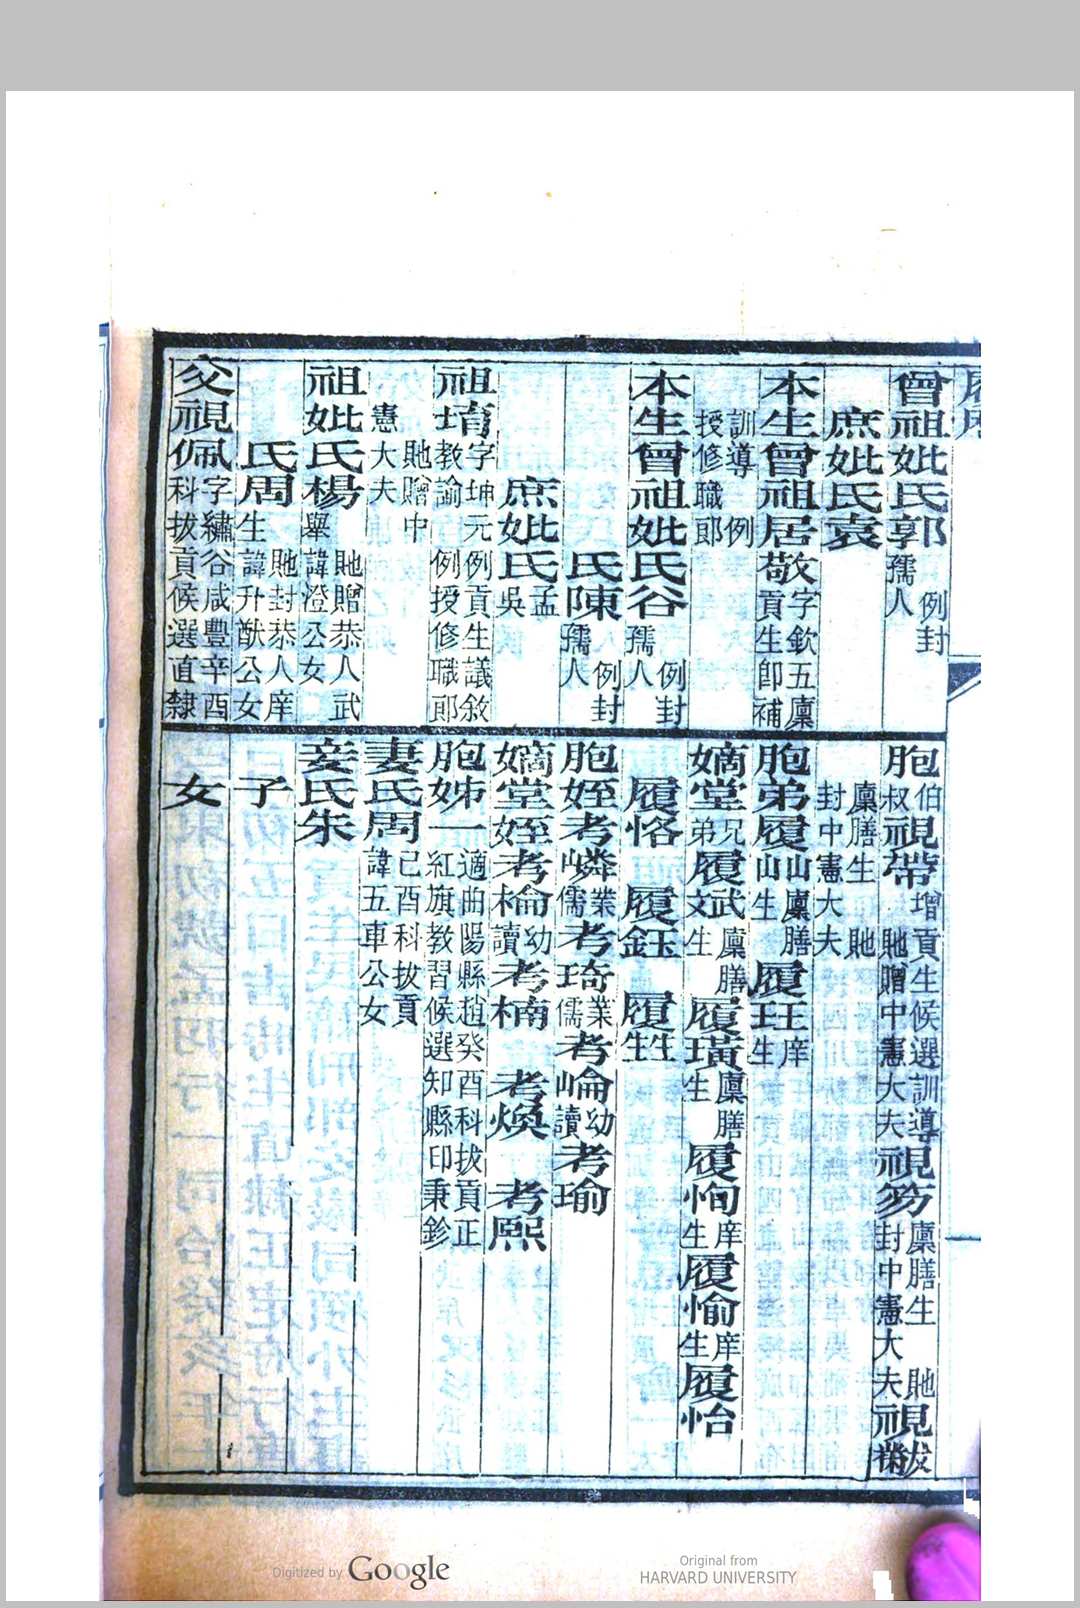 曾祖妣氏郭 例封孺人
庶妣氏袁
本生曾祖居敬 字欽五廩貢生卽補
訓導 例授修職郎
本生曾祖妣氏谷 例封孺人
氏陳 例封孺人
庶妣氏 孟吳
祖堉 字坤元例貢生議敘教諭 例授修職郎
貤贈中憲大夫
祖妣氏楊 貤贈恭人武舉諱澄公女
氏周 貤封恭人庠生諱升猷公女
父視佩 字繡谷咸豐辛酉科拔貢候選直隸
胞伯叔視帶 增貢生候選訓導 貤贈中憲大夫 視笏 廩膳生 貤封中憲大夫 視黻
廩膳生 貤封中憲大夫
胞弟履山 山生 廩膳 履玨 庠生
嫡堂兄弟履斌 文生 廩膳 履璜 廩膳生 履恂 庠生 履愉 庠生 履怡
履恪 履鈺 履
胞姪考嶙 業儒 考琦 業儒 考崘 幼讀 考瑜
嫡堂姪考棆 幼讀 考楠 考煥 考熙
胞姊一 適曲陽縣趙癸酉科拔貢正紅旗教習候選知縣印秉鉁
妻氏周 己酉科拔貢諱五車公女
妾氏朱
子
女
Digitized by Google
Original from
HARVARD UNIVERSITY